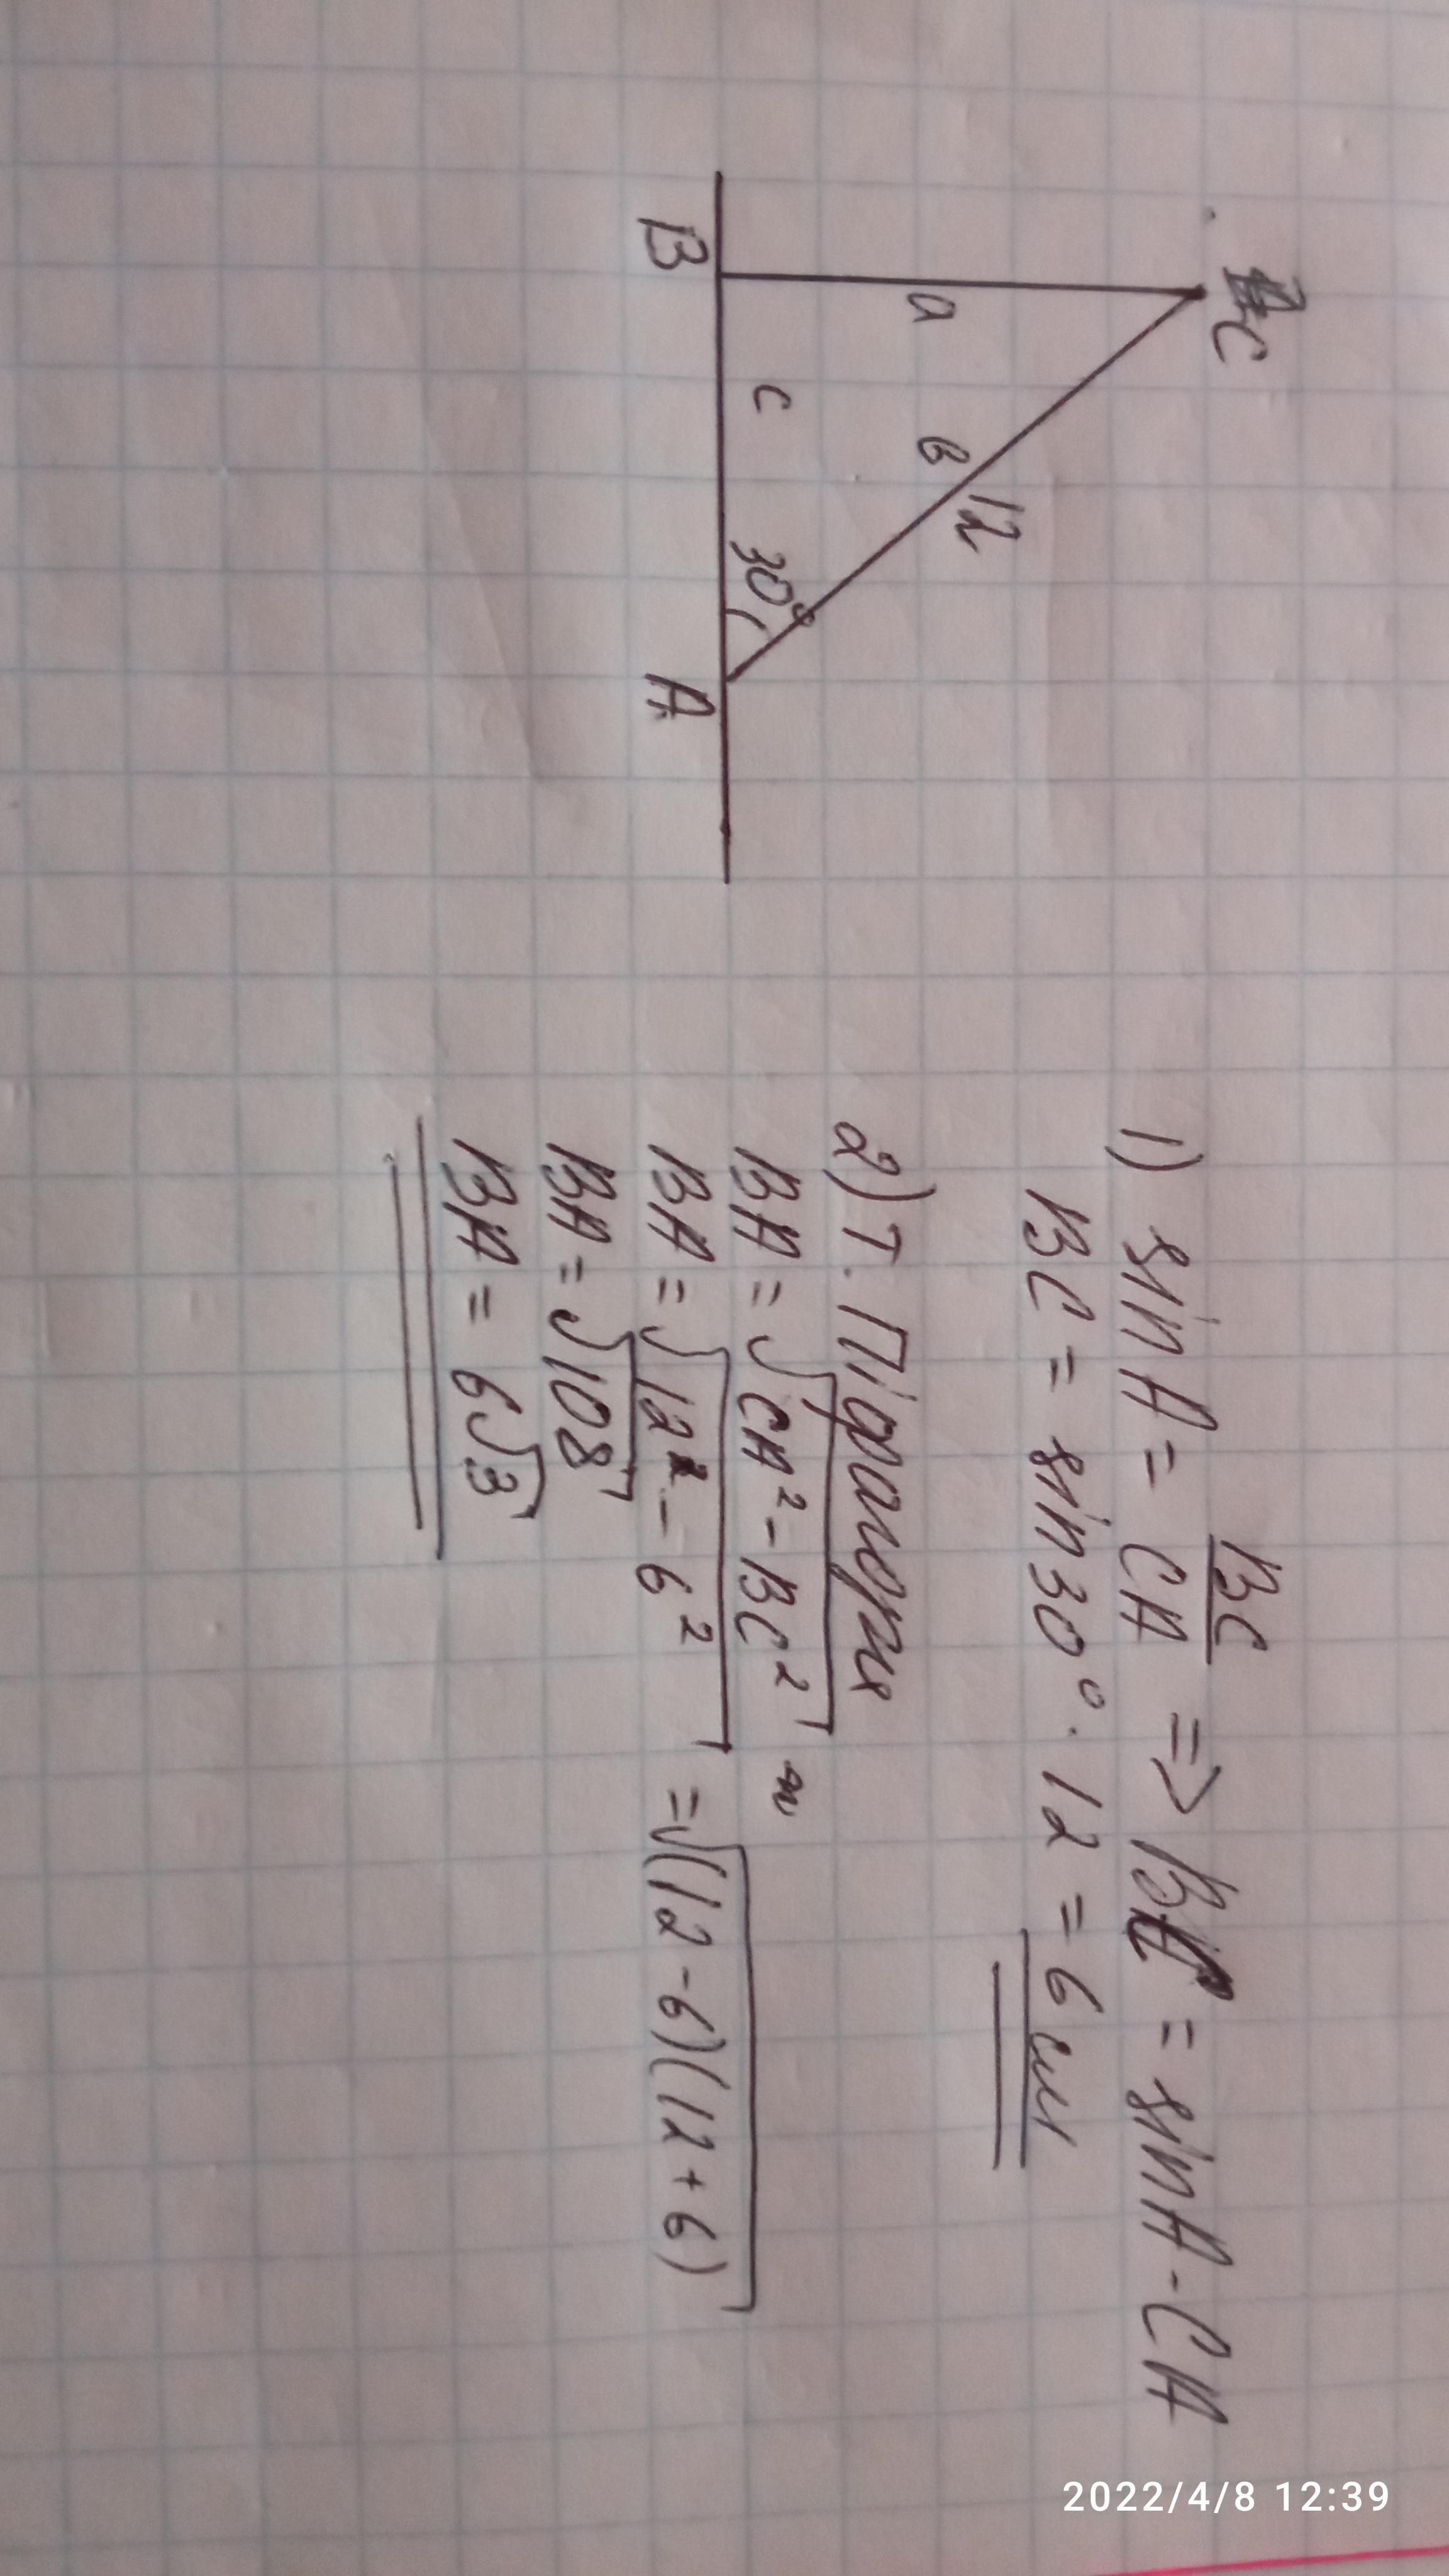 C
a
в
12
c
30°
B
A
1) sin A = BC/CA => BC = sin A - CA
BC = sin 30° · 12 = 6 см
2) т. Піфагора
BA = √CA² - BC²
BA = √12² - 6² = √(12-6)(12+6)
BA = √108
BA = 6√3
2022/4/8 12:39